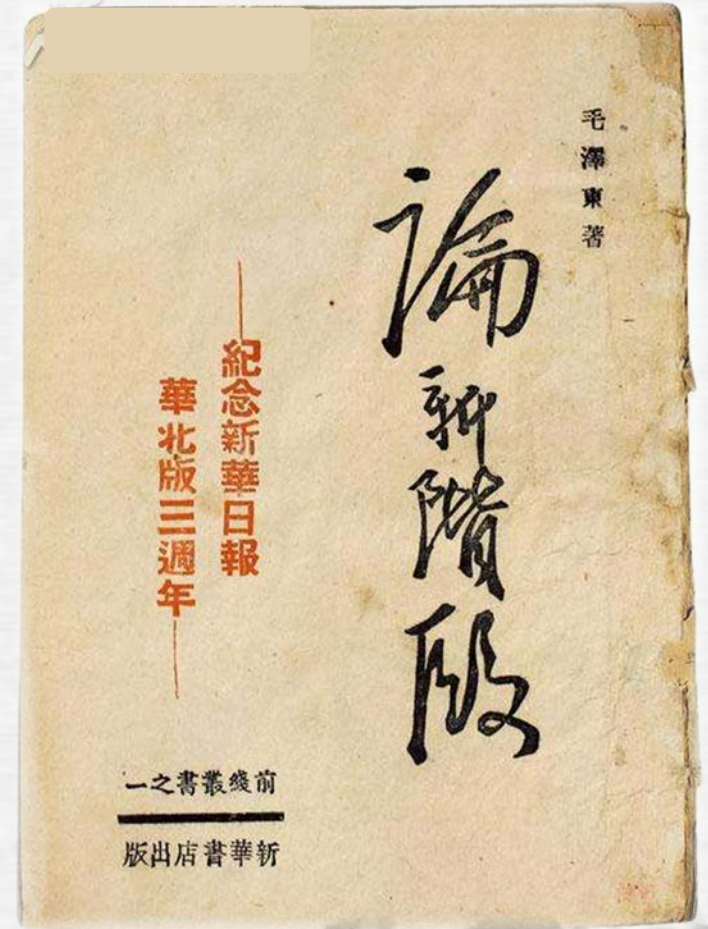 毛澤東著
論新階段
紀念新華日報
華北版三週年
前綫叢書之一
新華書店出版